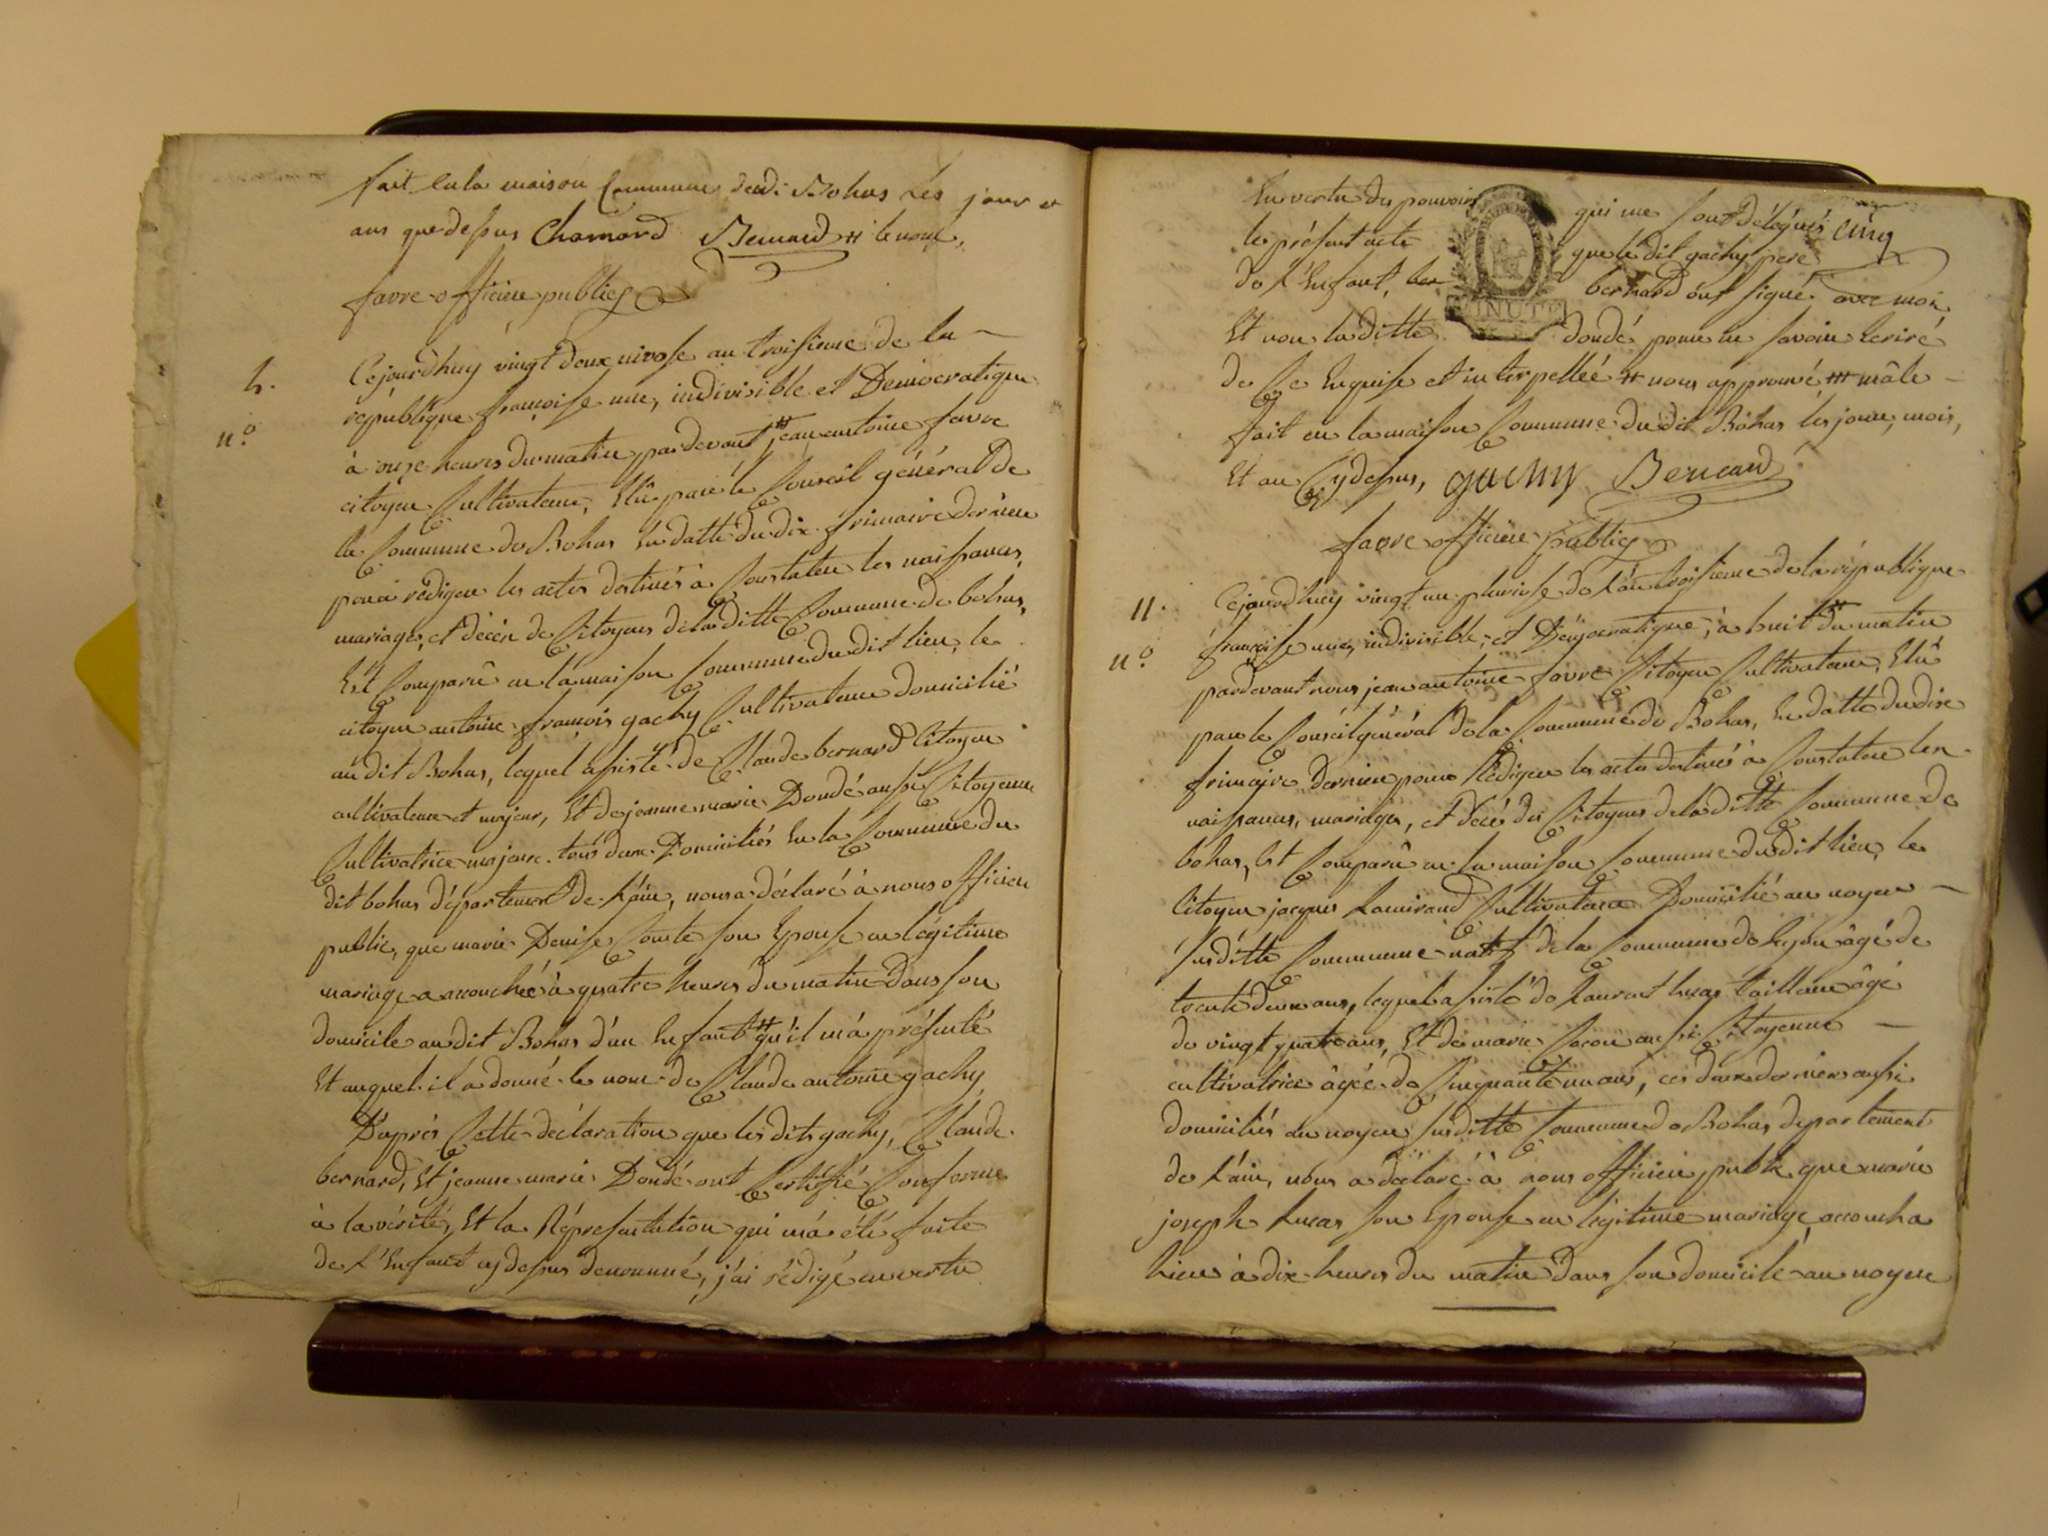 fait en la maison Commune dudi Bohas Les jour et
ans que dessus Chamard Bernard # le nom,
favre officier publicq
4.
n.º
Cejourd'huy vingt deux nivose an troisieme de la
république françoise une, indivisible et Democratique
à onze heures du matin pardevant # jean antoine favre
citoyen Cultivateur, Elû par le Conseil général de
la Commune de Bohas En datte du dix frimaire dernier
pour rédiger les actes destinés à Constater les naissances,
mariages, et décès de Citoyens de la ditte Commune de bohas,
Est Comparû en la maison Commune du dit lieu, le
citoyen antoine françois gachy Cultivateur domicilié
au dit Bohas, lequel assisté de Claude bernard Citoyen
cultivateur et majeur, Et de jeanne marie Doudé aussi Citoyenne
Cultivatrice majeure tous deux Domiciliés En la Commune du
dit bohas département de l'ain, nous a déclaré à nous officier
public, que marie Denise Comte son Epouse en légitime
mariage a accouchée à quatre heures du matin Dans son
domicile au dit Bohas d'un Enfant ## qu'il m'a présenté
Et auquel il a donné le nom de Claude antoine gachy
D'après Cette déclaration que les dits gachy, Claude
bernard, Et jeanne marie Doudé ont Certifié Conforme
à la vérité, Et la Représentation qui m'a été faite
de L'Enfant cy dessus denommé, j'ai rédigé en vertu
En vertu des pouvoirs qui me sont délégués cinq
le présent acte que le dit gachy pere
de L'Enfant, ber bernard ont signé avec moi
MINUTE
Et non la ditte doudé pour ne savoir Ecriré
de Ce Enquise et interpellée # nous approuvé ### mâle
fait en la maison Commune du dit Bohas les jour, mois,
Et an Cy dessus, gachy Bernard
favre officier publicq
11.
n.º
Cejourd'huy vingt un pluviose de l'an troisieme de la république
françoise une, indivisible, et Démocratique, à huit du matin
pardevant nous jean antoine favre Citoyen Cultivateur, Elû
par le Conseil général de la Commune de Bohas, En datte du dix
frimaire Dernier pour Rédiger les actes destinés à Constater les
naissances, mariages, et décès des Citoyens de la ditte Commune de
bohas, Est Comparû en la maison Commune du dit lieu, le
Citoyen jacques Lamirand Cultivateur Domicilié au noyer
Susditte Commune natif de la Commune de âgé de
trente deux ans, lequel assisté de Laurent Lucas tailleur âgé
de vingt quatre ans, Et de marie aussi Citoyenne
cultivatrice âgée de Cinquante un ans, ces deux derniers aussi
domiciliés au noyer Susditte Commune de Bohas departement
de l'ain, nous a déclaré à nous officier public que marie
joseph Lucas son Epouse en légitime mariage, accoucha
hier à dix heures du matin Dans son domicile au noyer